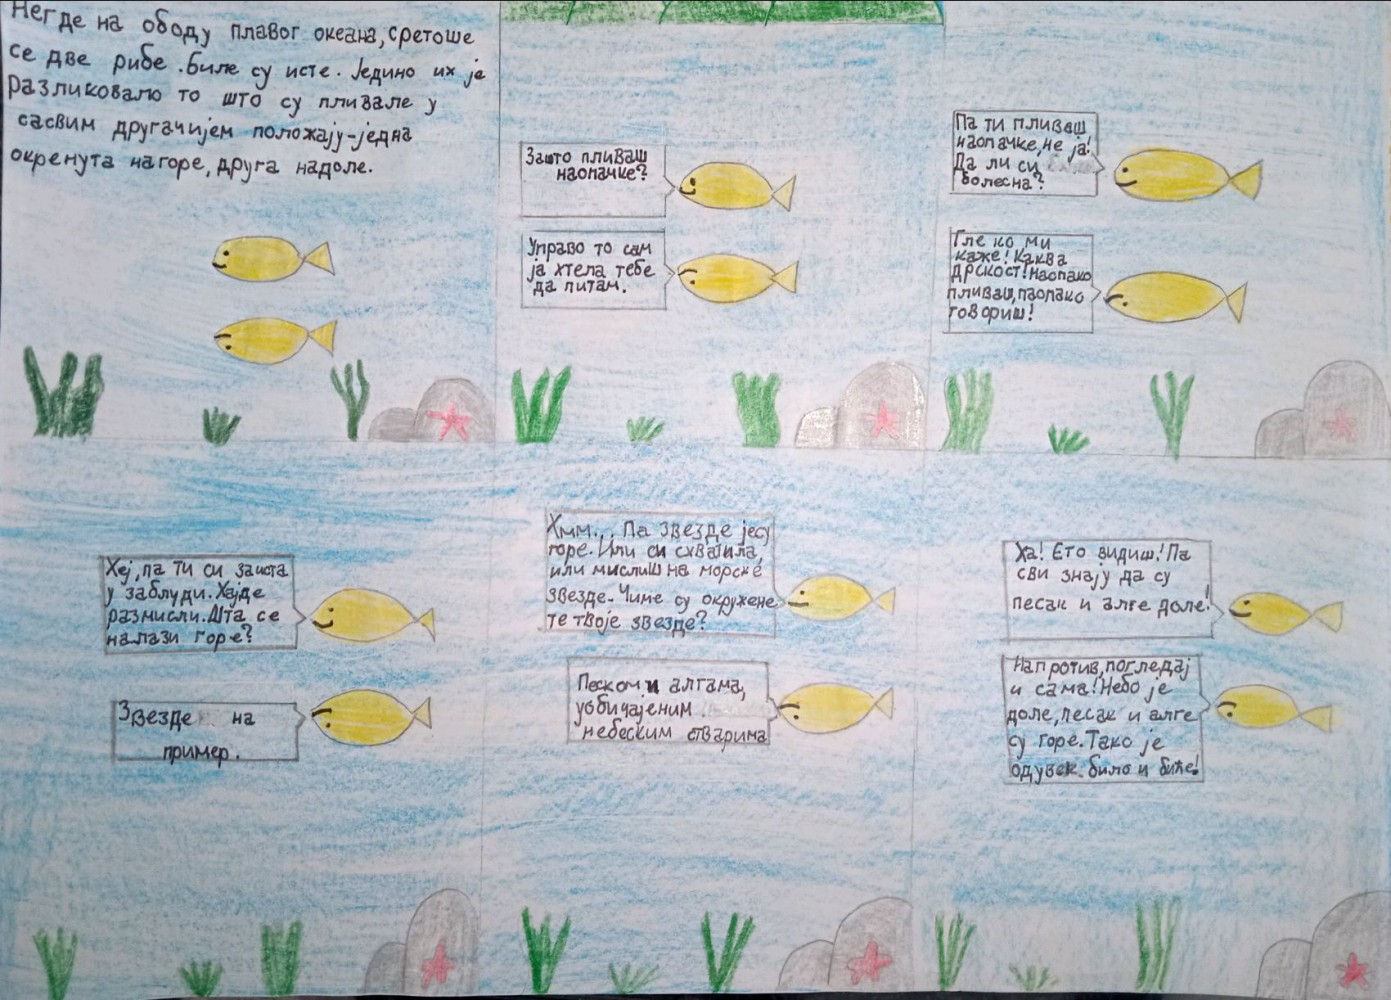 Негде на ободу плавог океана, сретоше
се две рибе. Биле су исте. Једино их је
разликовало то што су пливале у
сасвим другачијем положају-једна
окренута нагоре, друга надоле.
Зашто пливаш
наопачке?
Управо то сам
ја хтела тебе
да питам.
Па ти пливаш
наопачке, не ја!
Да ли си
болесна?
Гле ко ми
каже! Каква
дрскост! Наопако
пливаш, наопако
говориш!
Хеј, па ти си заиста
у заблуди. Хајде
размисли. Шта се
налази горе?
Звезде на
пример.
Хмм... Па звезде јесу
горе. Или си схватила,
или мислиш на морске
звезде. Чиме су окружене
те твоје звезде?
Песком и алгама,
уобичајеним
небеским стварима
Ха! Ето видиш! Па
сви знају да су
песак и алге доле!
Напротив, погледај
и сама! Небо је
доле, песак и алге
су горе. Тако је
одувек било и биће!